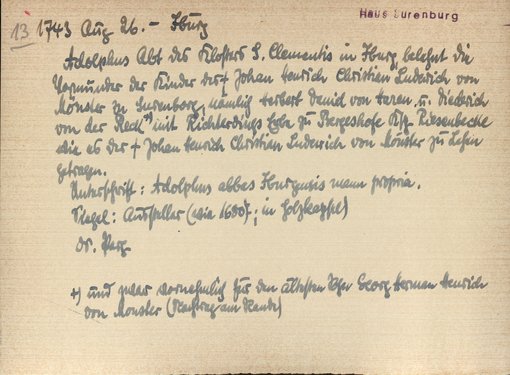 Haus Surenburg
13 1743 Aug 26. - Iburg
Adolphus Abt des Klosters S. Clementis in Iburg belehnt die
Vormünder der Kinder des † Johan Henrich Christian Luderich von
Mönster zu Surenborg, nämlich Herbert David von Haren u. Diederich
von der Reck +) mit Richterdings Erbe zu Bergeshofe Ksp. Riesenbecke
wie es der † Johan Henrich Christian Luderich von Mönster zu Lehen
getragen.
Unterschrift: Adolphus abbas Iburgensis manu propria.
Siegel: Aussteller (wie 1680); in Holzkapsel)
Or. Perg.
+) und zwar vornehmlich für den ältesten Sohn Georg Herman Henrich
von Monster (Nachtrag am Rande)